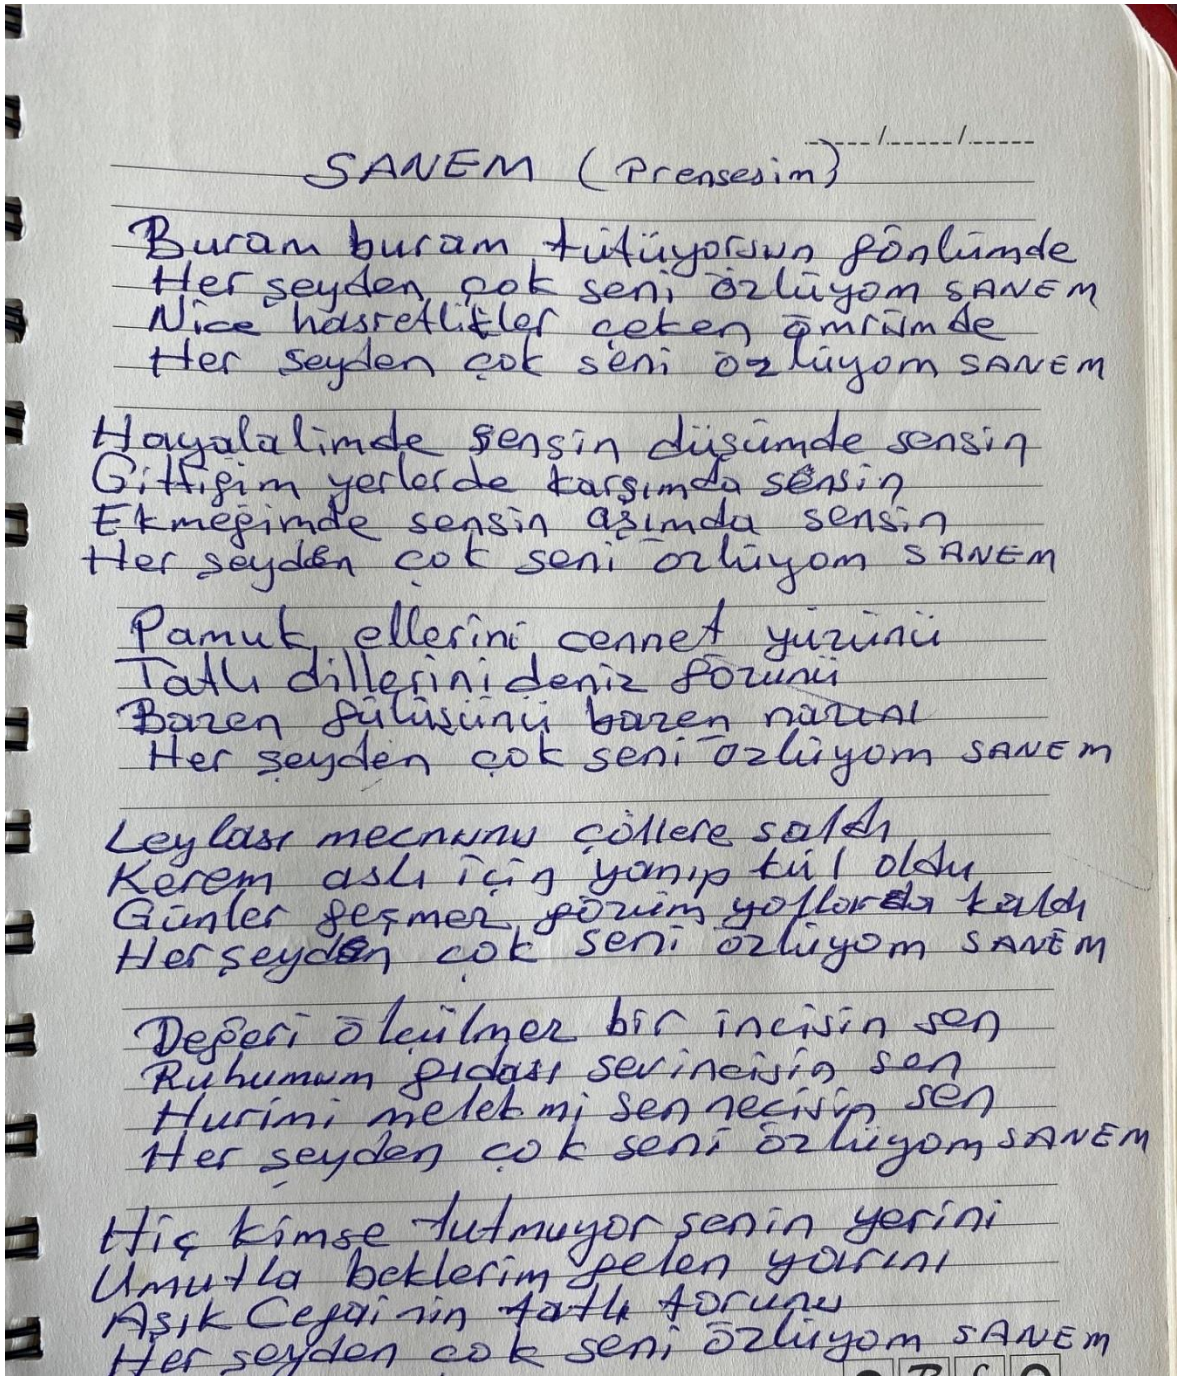 SANEM (Prensesim)
Buram buram tütüyorsun gönlümde
Her şeyden çok seni özlüyom SANEM
Nice hasretlikler çeken ömrümde
Her şeyden çok seni özlüyom SANEM
Hayalalimde sensin düşümde sensin
Gittiğim yerlerde karşımda sensin
Ekmeğimde sensin aşımda sensin
Her şeyden çok seni özlüyom SANEM
Pamuk ellerini cennet yüzünü
Tatlı dillerini deniz gözünü
Bazen gülüşünü bazen nazını
Her şeyden çok seni özlüyom SANEM
Leylası mecnunu çöllere saldı
Kerem aslı için yanıp kül oldu
Günler geçmez gözüm yollarda kaldı
Her şeyden çok seni özlüyom SANEM
Değeri ölçülmez bir incisin sen
Ruhumum gıdası sevincisin sen
Hurimi melek mi sen necisin sen
Her şeyden çok seni özlüyom SANEM
Hiç kimse tutmuyor senin yerini
Umutla beklerim gelen yarını
Aşık Cefai nin tatlı torunu
Her şeyden çok seni özlüyom SANEM